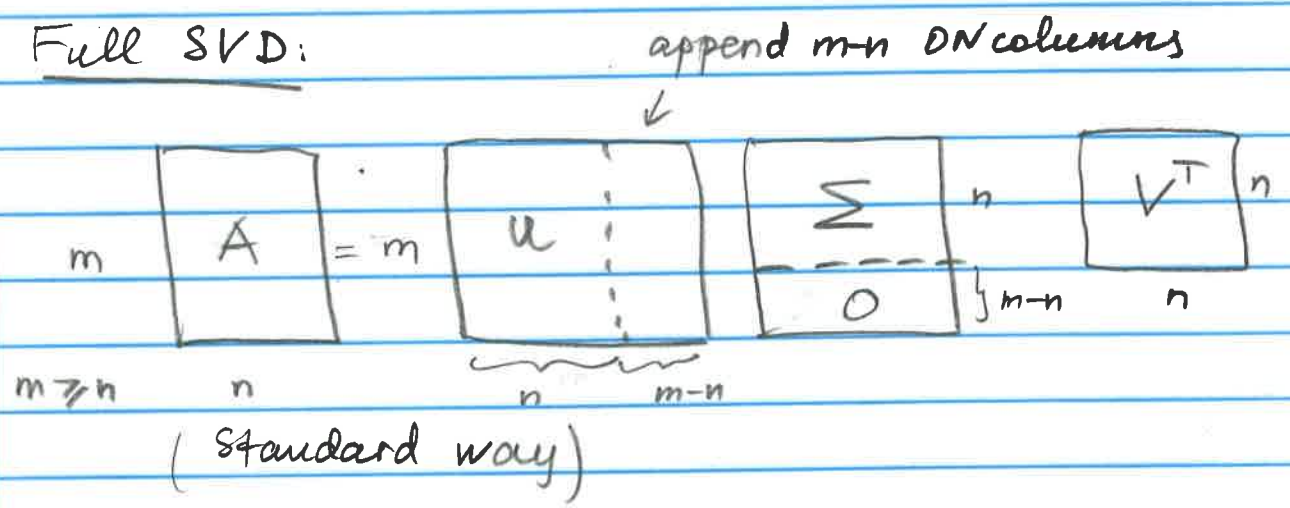 Full SVD:
append m-n ON columns
m A = m U Σ n V^T n
0 } m-n n
m ⩾ n n n m-n
(Standard way)